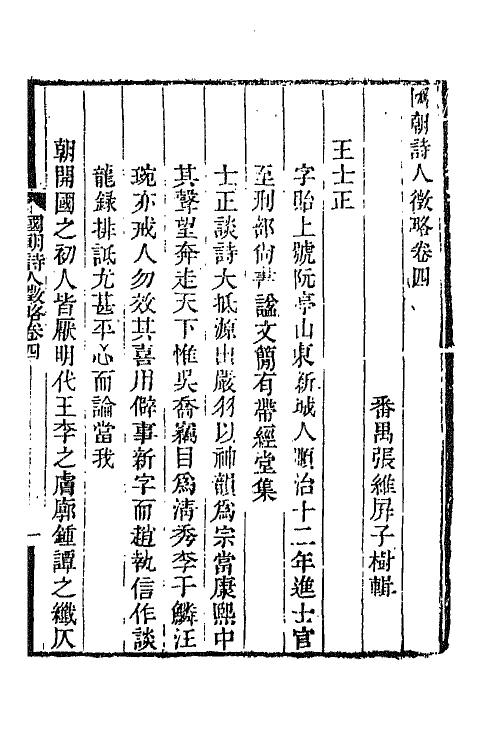 國朝詩人徵略卷四
番禺張維屏子樹輯
王士正
字貽上號阮亭山東新城人順治十二年進士官
至刑部尚書諡文簡有帶經堂集
士正談詩大抵源出嚴羽以神韻為宗當康熙中
其聲望奔走天下惟吳喬竊目為清秀李于鱗汪
琬亦戒人勿效其喜用僻事新字而趙執信作談
龍錄排詆尤甚平心而論當我
朝開國之初人皆厭明代王李之膚廓鍾譚之纖仄
國朝詩人徵略卷四
一